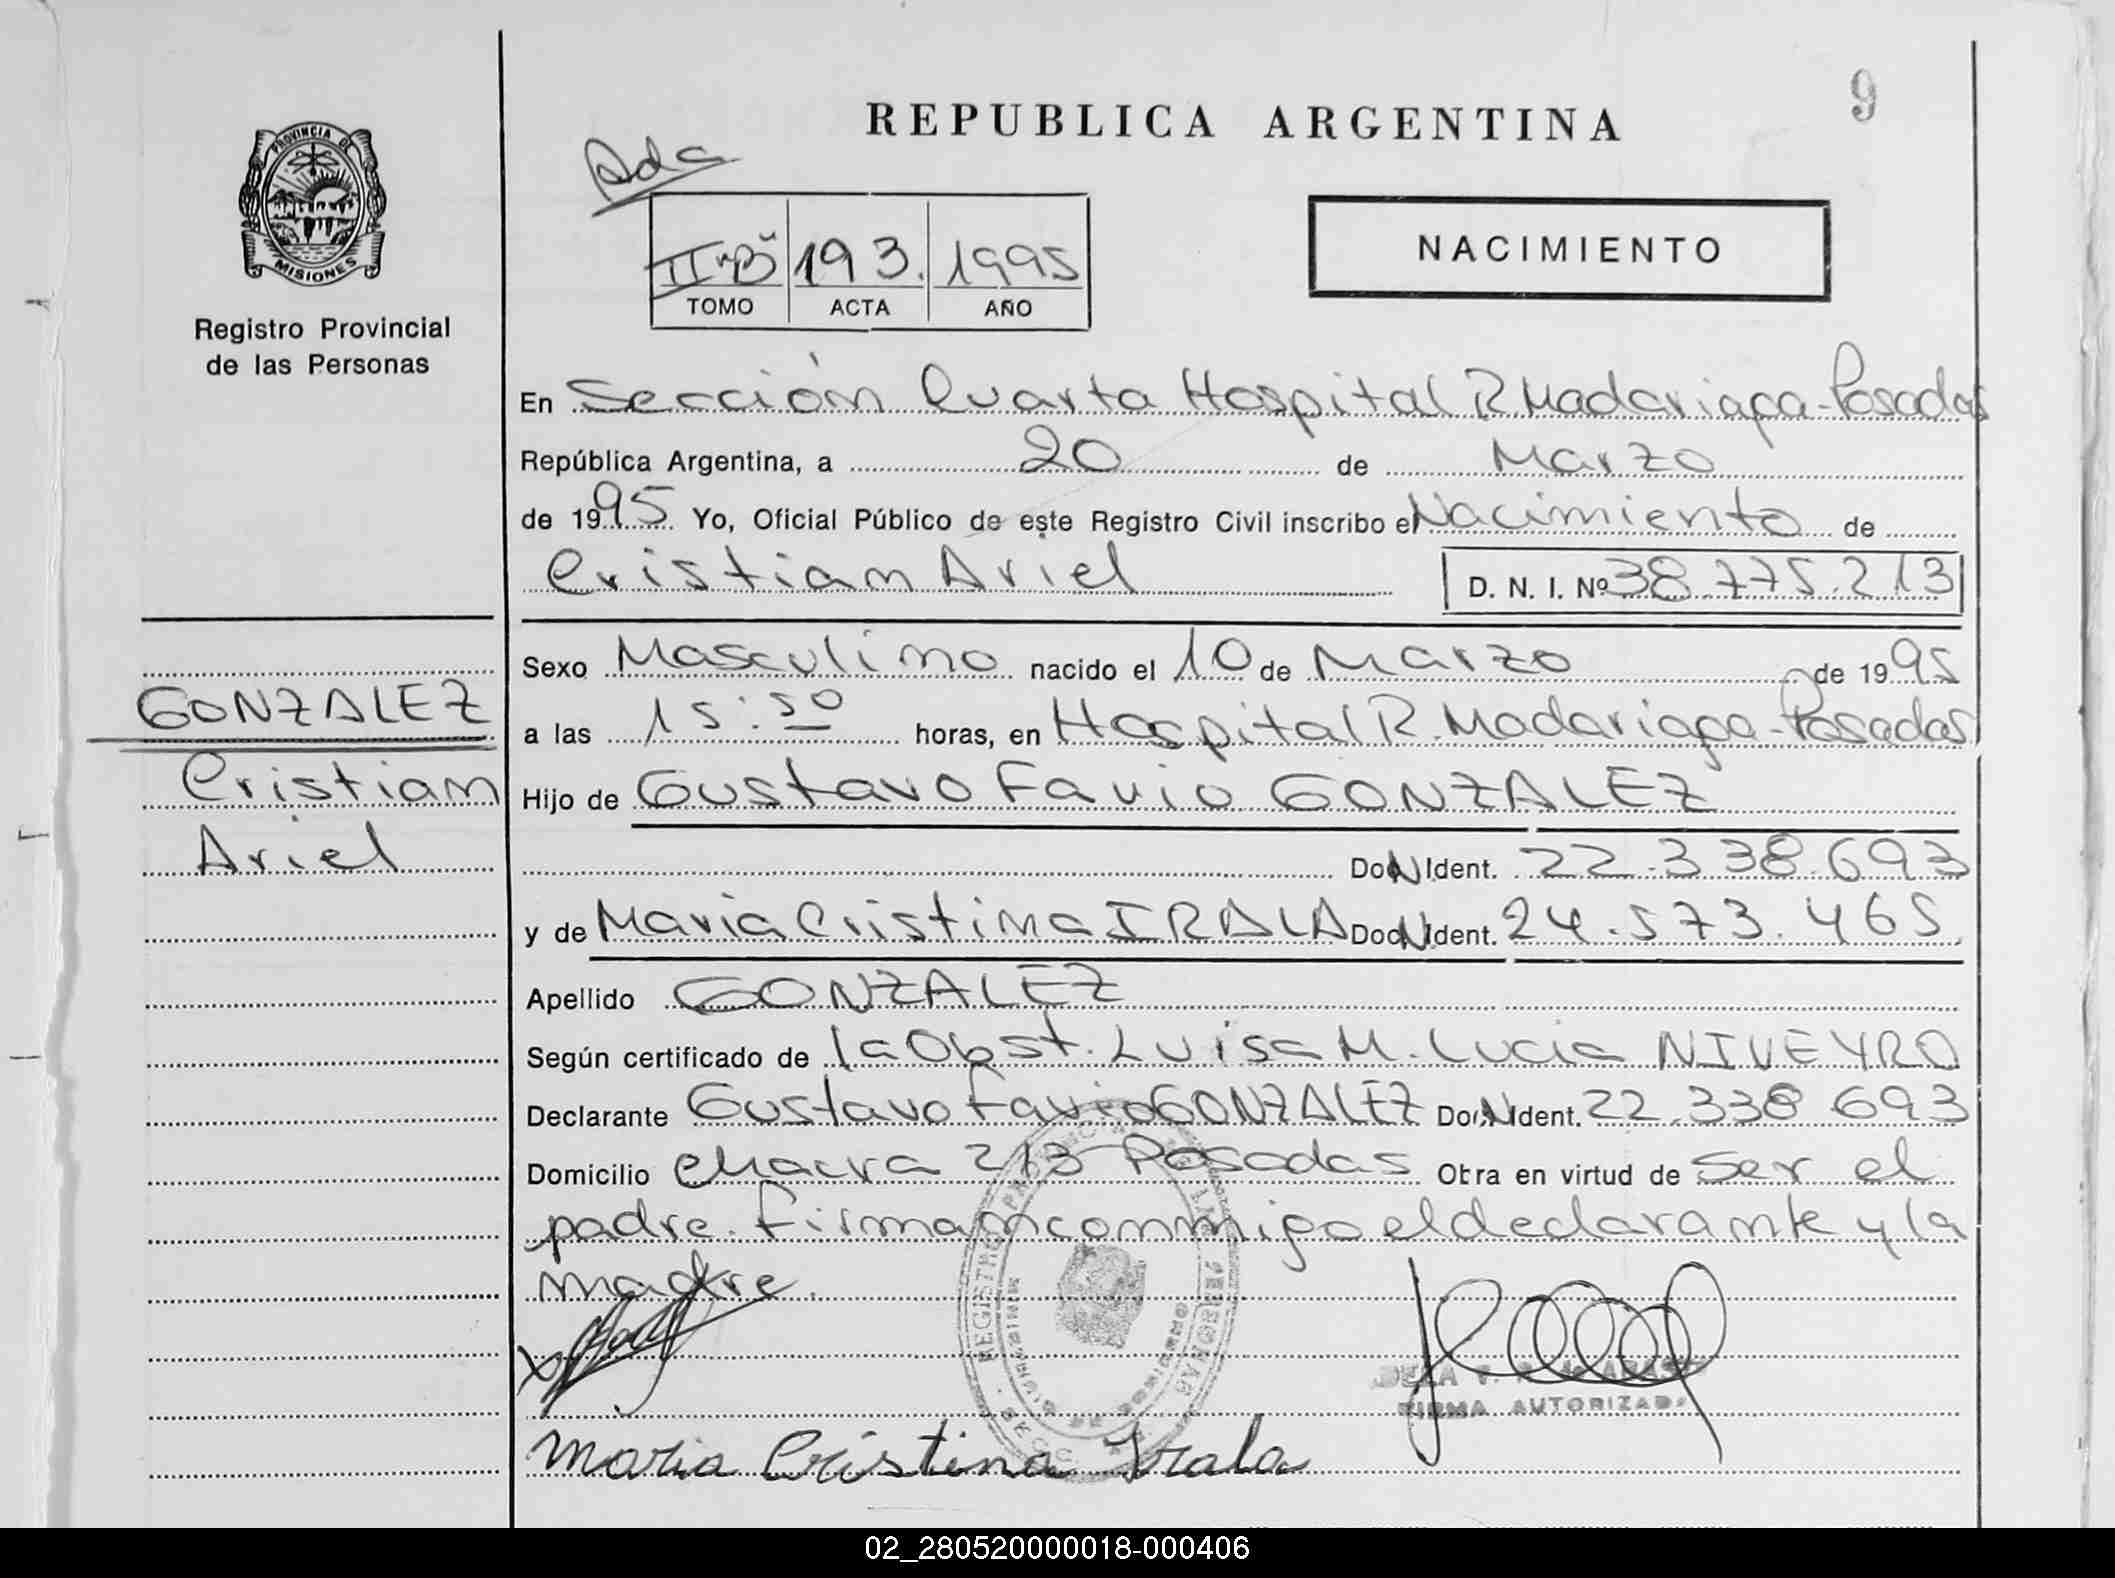 9
REPUBLICA ARGENTINA
PROVINCIA DE
MISIONES
Registro Provincial
de las Personas
Ada
IIºBº 193. 1995
TOMO ACTA AÑO
NACIMIENTO
En Sección Cuarta Hospital R Madariaga-Posadas
República Argentina, a 20 de Marzo
de 1995 Yo, Oficial Público de este Registro Civil inscribo el Nacimiento de
Cristian Ariel D. N. I. Nº 38.775.213
Sexo Masculino nacido el 10 de Marzo de 1995
a las 15:50 horas, en Hospital R. Madariaga-Posadas
Hijo de Gustavo Favio GONZALEZ
Doc N Ident. 22.338.693
y de Maria Cristina IRALA Doc N Ident. 24.573.465
Apellido GONZALEZ
Según certificado de la Obst. Luisa M. Lucia NIVEYRO
Declarante Gustavo Favio GONZALEZ Doc N Ident. 22.338.693
Domicilio Chacra 213 Posadas Obra en virtud de Ser el
padre. Firman conmigo el declarante y la
madre.
GONZALEZ
Cristian
Ariel
FIRMA AUTORIZADA
Maria Cristina Irala
02_280520000018-000406